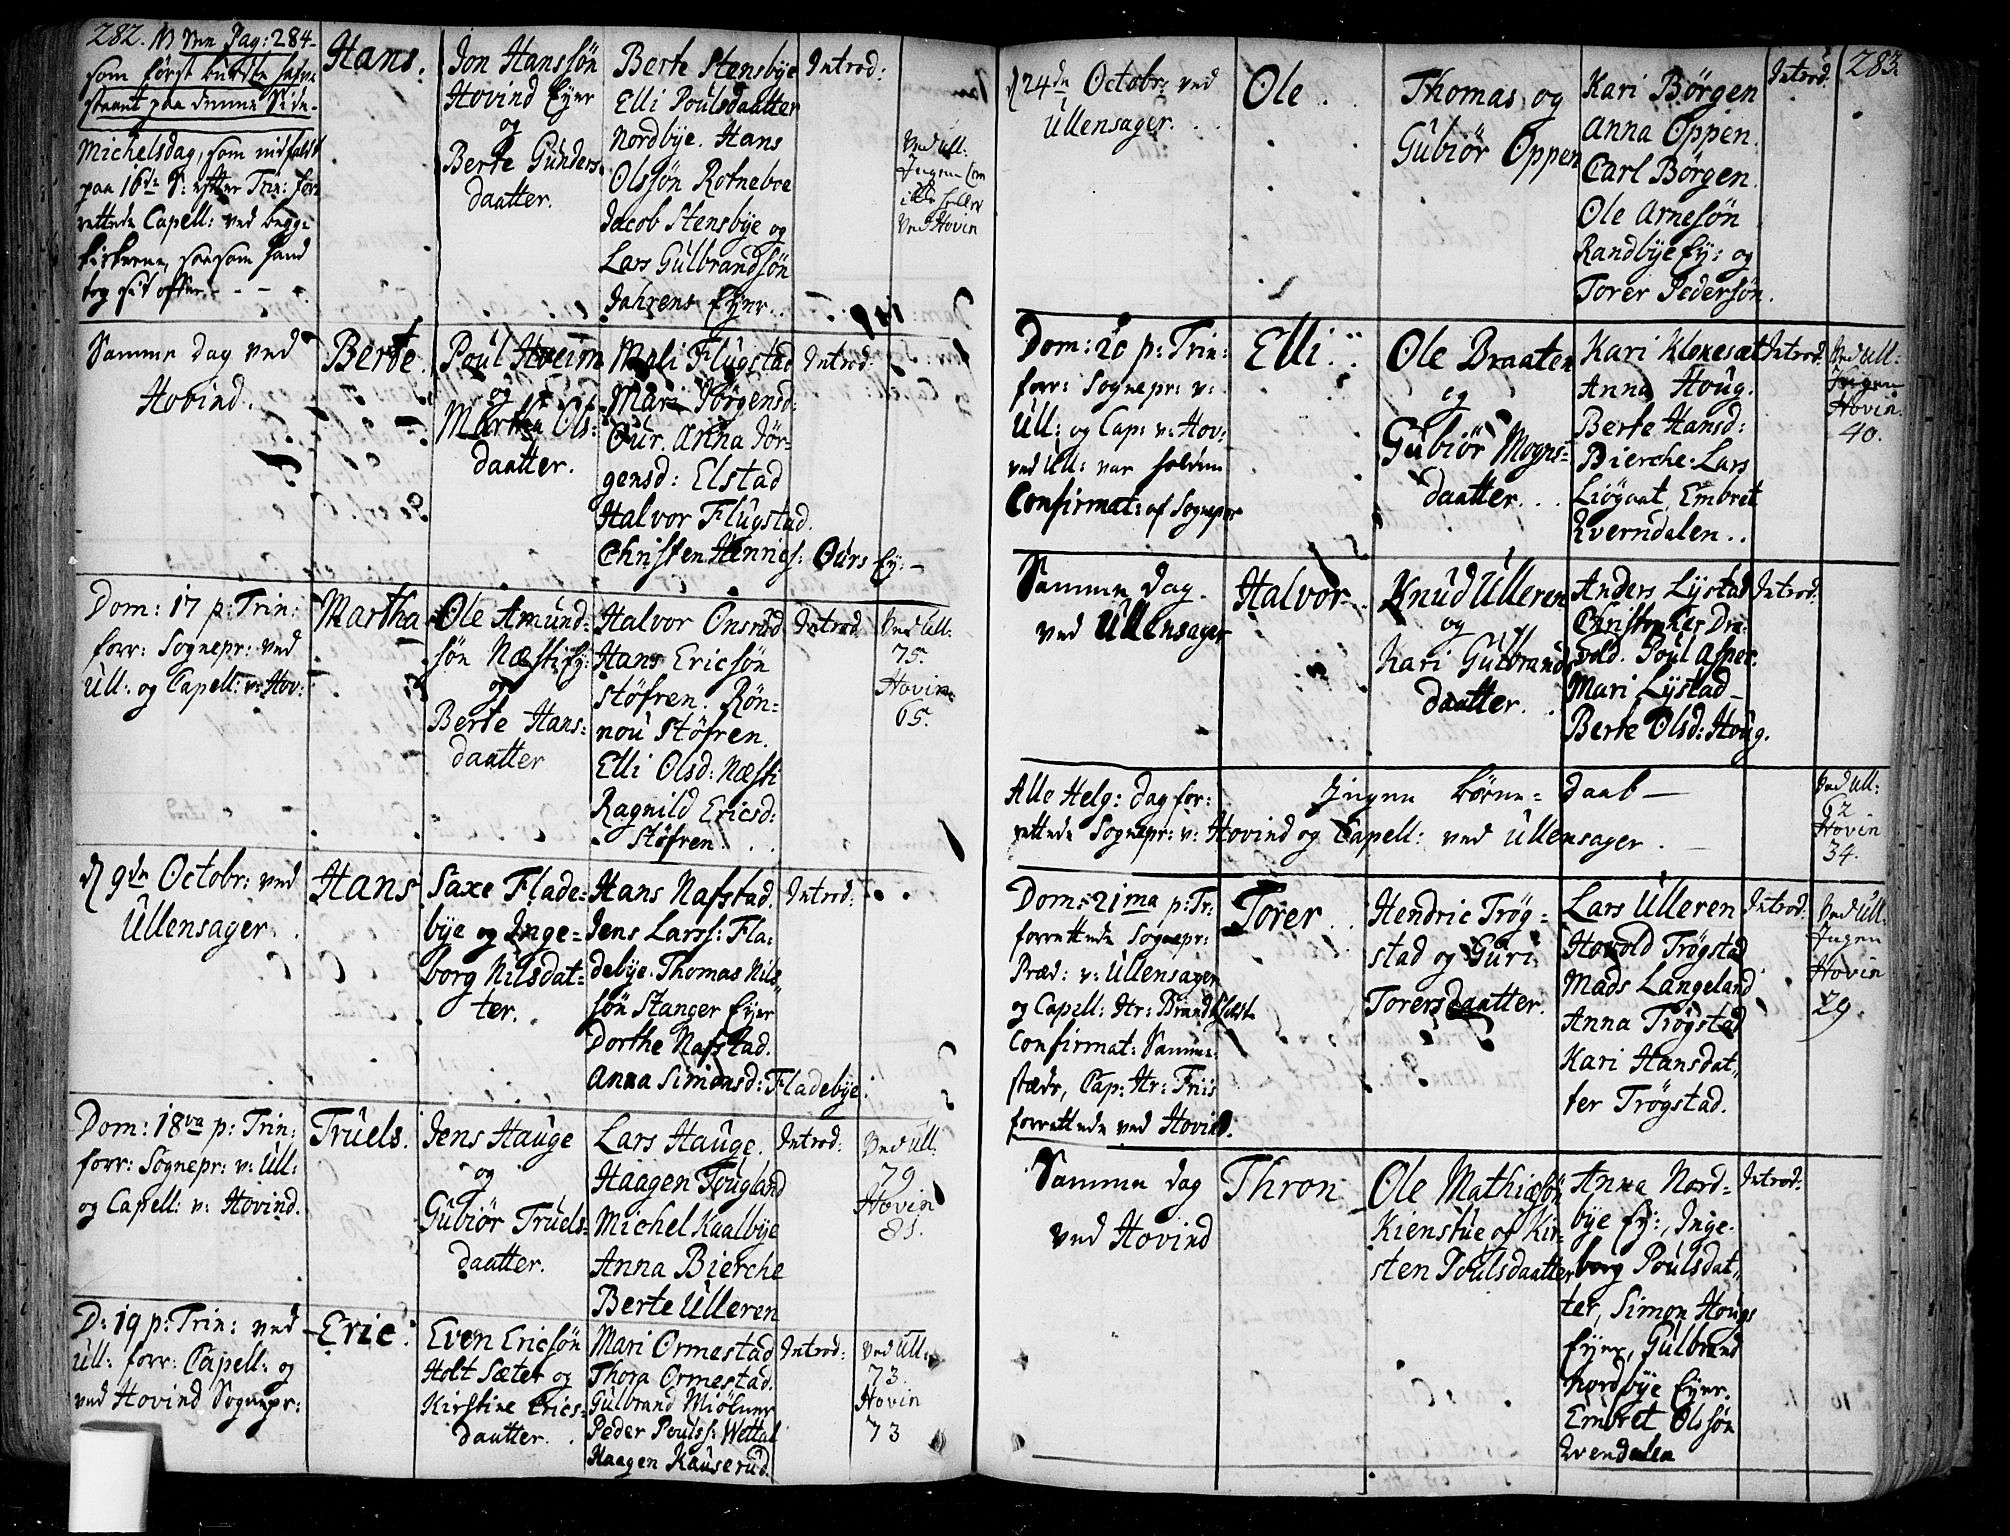 282. NB See Pag: 284
som først burde have
staaet paa denne Side.
Michelsdag, som indfaldt
paa 16de S: efter Trin: for
rettede Capell: ved begge
Kirkerne, saasom hand
tog sit offer.
Hans.
Jon Hanssøn
Hovind Eyer
og
Berte Gunders
daatter.
Berte Stensbÿe
Elli Poulsdaatter
Nordbÿe. Hans
Olssøn Rotneboe
Jacob Stensbÿe og
Lars Gulbrandsøn
Jahrens Eÿer.
Introd:
Ved Ull:
Ingen
ved Hovin
Samme dag ved
Hovind.
Berte
Poul Hveim
og
Martha Ols:
daatter.
Mali Flugstad
Mari Jørgensd:
Our. Anna Jør-
gensd: Elstad
Halvor Flugstad.
Christen Henrics: Ours Eÿ:
Introd:
Dom: 17 p: Trin:
forr: Sognepr: ved
Ull: og Capell: v: Hov:
Martha
Ole Amund-
søn Næstieÿ:
og
Berte Hans:
daatter
Halvor Onsrud
Hans Ericsøn
Støfren. Røn-
nou Støfren.
Elli Olsd: Næsti
Ragnild Ericsd:
Støfren.
Introd
Ved Ull:
75.
Hovin
65.
d 9de Octobr: ved
Ullensager.
Hans
Saxe Flade-
bÿe og Inge-
borg Nilsdat-
ter.
Hans Nafstad.
Jens Larss: Fla:
debÿe. Thomas Nils
søn Stanger Eÿer
Dorthe Nafstad.
Anna Simonsd: Fladebÿe.
Introd:
Dom: 18va p: Trin:
forr: Sognepr: v: Ull:
og Capell: v: Hovind.
Truels.
Jens Hauge
og
Gubiør Truels-
daatter.
Lars Hauge.
Haagen Fougland
Michel Kaalbÿe
Anna Bierche
Berte Ulleren
Introd:
Ved Ull.
79
Hovin
81.
D: 19 p: Trin: ved
Ull: forr: Capell: og
ved Hovind Sognepr:
Eric.
Even Ericsøn
Holt Sæter og
Kirstine Erics-
daatter.
Mari Ormestad
Thora Ormestad.
Gulbrand Miølner
Peder Poulss: Wettal
Haagen Kauserud.
Introd:
Ved Ull:
73.
Hovin
73
283.
d 24de Octobr: ved
Ullensager.
Ole
Thomas og
Gubiör Oppen
Kari Børgen
Anna Oppen.
Carl Børgen.
Ole Arnesøn
Randbÿe Eÿ: og
Torer Pedersøn.
Introd.
Dom: 20 p: Trin:
forr: Sognepr: v:
Ull: og Cap: v: Hov:
ved Ull: var holden
Confirmat: af Sognepr
Elli.
Ole Braaten
og
Gubiør Mogns-
daatter.
Kari Klokesæt
Anna Houg.
Berte Hansd:
Bierche: Lars
Liøgaat, Embret
Everndalen.
Introd:
Ved Ull:
Ingen
Hovin.
40.
Samme dag
ved Ullensager
Halvor
Knud Ulleren
og
Kari Gulbrands
daatter.
Anders Lÿstad
Christopher Dra-
vold. Poul Asper.
Mari Lÿstad
Berte Olsd: Houg.
Introd:
Alle Helg: dag for:
rettede Sognepr: v: Hovind og Capell: ved Ullensager.
Ingen Børne-daab
Ved Ull:
62
Hovin
34.
Dom: 21ma p: Tr:
forrettede Sognepr:
Præd: v: Ullensager
og Capell: Hr:
Confirmat: Samme-
stæds, Cap: Hr: Friis
forrettede ved Hovind.
Torer
Hendric Trøg-
stad og Guri
Torersdaatter.
Lars Ulleren
Hovold Trøgstad
Mads Langeland
Anna Trøgstad
Kari Hansdat
ter Trøgstad.
Introd:
Ved Ull:
Ingen
Hovin
29.
Samme dag
ved Hovind
Thron
Ole Mathiesøn
Kienstue og Kir-
sten Poulsdaatter
Anna Nord-
bÿe Eÿ:, Inge-
borg Poulsdat
ter, Simon Hougs
Eÿer, Gulbrand
Nordbÿe Eÿer.
Embret Olssøn
Evendalen
Introd: